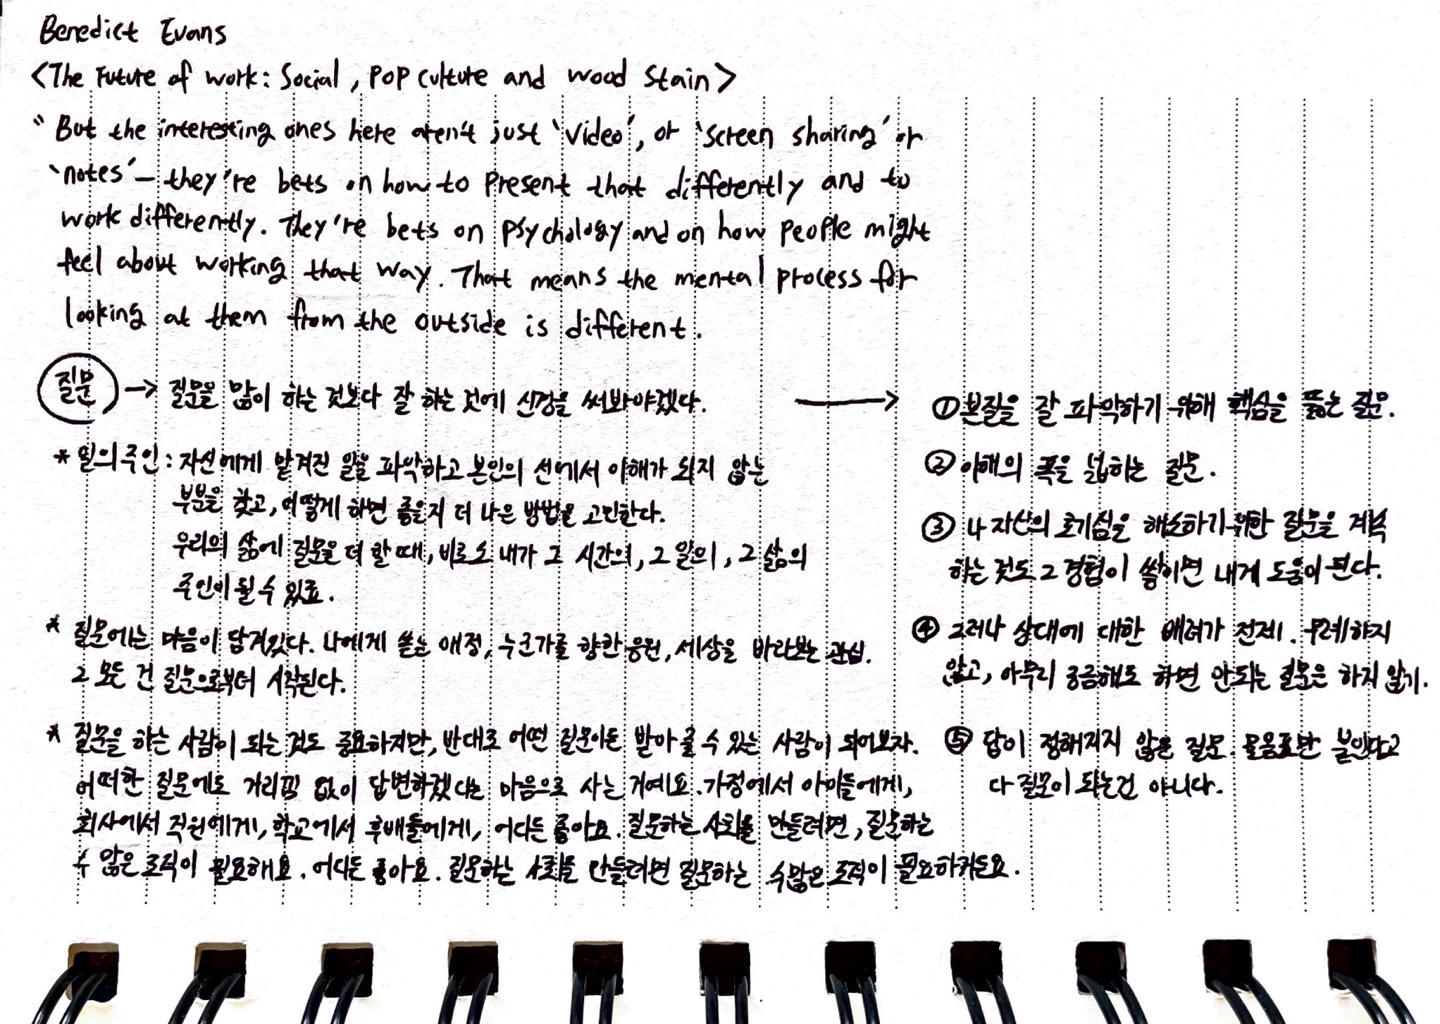 Benedict Evans
<The Future of work: Social, Pop culture and wood Stain>
"But the interesting ones here aren't just 'video', or 'screen sharing' or
'notes' – they're bets on how to present that differently and to
work differently. They're bets on psychology and on how people might
feel about working that way. That means the mental process for
looking at them from the outside is different.
질문 → 질문을 많이 하는 것보다 잘 하는 것에 신경을 써봐야겠다. →
* 일의 주인 : 자신에게 맡겨진 일을 파악하고 본인의 선에서 이해가 되지 않는
부분을 찾고, 어떻게 하면 좋을지 더 나은 방법을 고민한다.
우리의 삶에 질문을 더 할 때, 비로소 내가 그 시간의, 그 일의, 그 삶의
주인이 될 수 있죠.
* 질문에는 마음이 담겨있다. 나에게 쏟는 애정, 누군가를 향한 응원, 세상을 바라보는 관심.
그 모든 건 질문으로부터 시작된다.
* 질문을 하는 사람이 되는 것도 중요하지만, 반대로 어떤 질문이든 받아줄 수 있는 사람이 되어보자.
어떠한 질문에도 거리낌 없이 답변하겠다는 마음으로 사는 거예요. 가정에서 아이들에게,
회사에서 직원에게, 학교에서 후배들에게, 어디든 좋아요. 질문하는 사회를 만들려면, 질문하는
수 많은 조직이 필요해요. 어디든 좋아요. 질문하는 사회를 만들려면 질문하는 수많은 조직이 필요하거든요.
① 본질을 잘 파악하기 위해 핵심을 뚫는 질문.
② 이해의 폭을 넓히는 질문.
③ 나 자신의 호기심을 해소하기 위한 질문을 계속
하는 것도 그 경험이 쌓이면 내게 도움이 된다.
④ 그러나 상대에 대한 배려가 전제. 무례하지
않고, 아무리 궁금해도 하면 안되는 질문은 하지 않기.
⑤ 답이 정해지지 않은 질문. 물음표만 붙인다고
다 질문이 되는건 아니다.